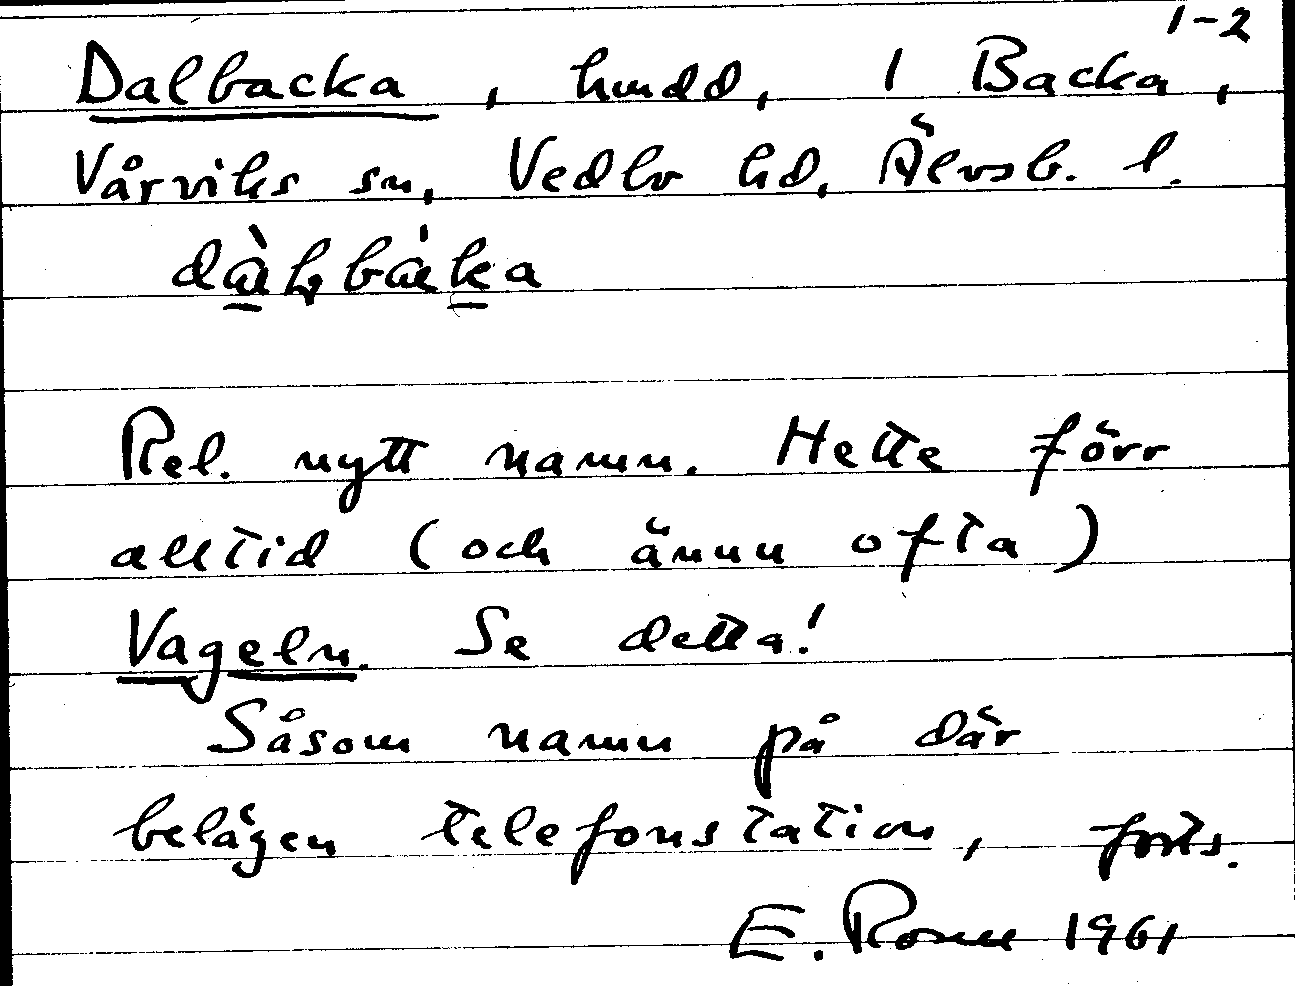 1-2
Dalbacka, hmdd, 1 Backa,
Vårviks sn, Vedbo hd, Älvsb. l.
Rel. nytt namn. Hette förr
alltid (och ännu ofta)
Vageln. Se detta!
Såsom namn på där
belägen telefonstation, forts.
E. Rosell 1961